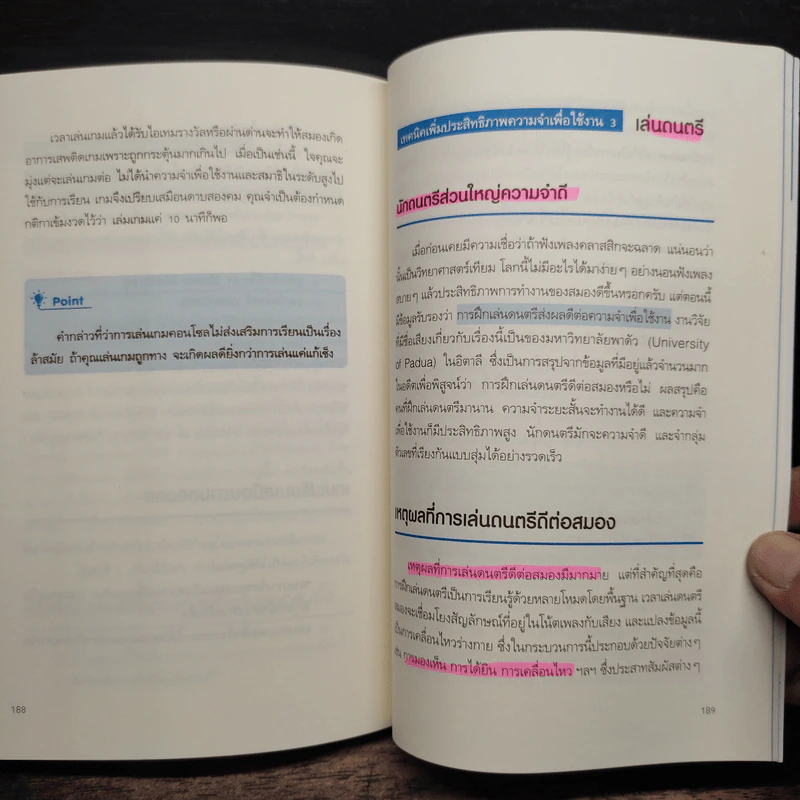 เวลาเล่นเกมแล้วได้รับไอเทมรางวัลหรือผ่านด่านจะทำให้สมองเกิด
อาการเสพติดเกมเพราะถูกกระตุ้นมากเกินไป เมื่อเป็นเช่นนี้ ใจคุณจะ
มุ่งแต่จะเล่นเกมต่อ ไม่ได้นำความจำเพื่อใช้งานและสมาธิในระดับสูงไป
ใช้กับการเรียน เกมจึงเปรียบเสมือนดาบสองคม คุณจำเป็นต้องกำหนด
กติกาเข้มงวดไว้ว่า เล่มเกมแค่ 10 นาทีก็พอ
Point
คำกล่าวที่ว่าการเล่นเกมคอนโซลไม่ส่งเสริมการเรียนเป็นเรื่อง
ล้าสมัย ถ้าคุณเล่นเกมถูกทาง จะเกิดผลดียิ่งกว่าการเล่นแค่แก้เซ็ง
188
เทคนิคเพิ่มประสิทธิภาพความจำเพื่อใช้งาน 3 เล่นดนตรี
นักดนตรีส่วนใหญ่ความจำดี
เมื่อก่อนเคยมีความเชื่อว่าถ้าฟังเพลงคลาสสิกจะฉลาด แน่นอนว่า
นั่นเป็นวิทยาศาสตร์เทียม โลกนี้ไม่มีอะไรได้มาง่ายๆ อย่างนอนฟังเพลง
สบายๆ แล้วประสิทธิภาพการทำงานของสมองดีขึ้นหรอกครับ แต่ตอนนี้
มีข้อมูลรับรองว่า การฝึกเล่นดนตรีส่งผลดีต่อความจำเพื่อใช้งาน งานวิจัย
ที่มีชื่อเสียงเกี่ยวกับเรื่องนี้เป็นของมหาวิทยาลัยพาดัว (University
of Padua) ในอิตาลี ซึ่งเป็นการสรุปจากข้อมูลที่มีอยู่แล้วจำนวนมาก
ในอดีตเพื่อพิสูจน์ว่า การฝึกเล่นดนตรีดีต่อสมองหรือไม่ ผลสรุปคือ
คนที่ฝึกเล่นดนตรีมานาน ความจำระยะสั้นจะทำงานได้ดี และความจำ
เพื่อใช้งานก็มีประสิทธิภาพสูง นักดนตรีมักจะความจำดี และจำกลุ่ม
ตัวเลขที่เรียงกันแบบสุ่มได้อย่างรวดเร็ว
เหตุผลที่การเล่นดนตรีดีต่อสมอง
เหตุผลที่การเล่นดนตรีดีต่อสมองมีมากมาย แต่ที่สำคัญที่สุดคือ
การฝึกเล่นดนตรีเป็นการเรียนรู้ด้วยหลายโหมดโดยพื้นฐาน เวลาเล่นดนตรี
สมองจะเชื่อมโยงสัญลักษณ์ที่อยู่ในโน้ตเพลงกับเสียง และแปลงข้อมูลนี้
เป็นการเคลื่อนไหวร่างกาย ซึ่งในกระบวนการนี้ประกอบด้วยปัจจัยต่างๆ
เช่น การมองเห็น การได้ยิน การเคลื่อนไหว ฯลฯ ซึ่งประสาทสัมผัสต่างๆ
189